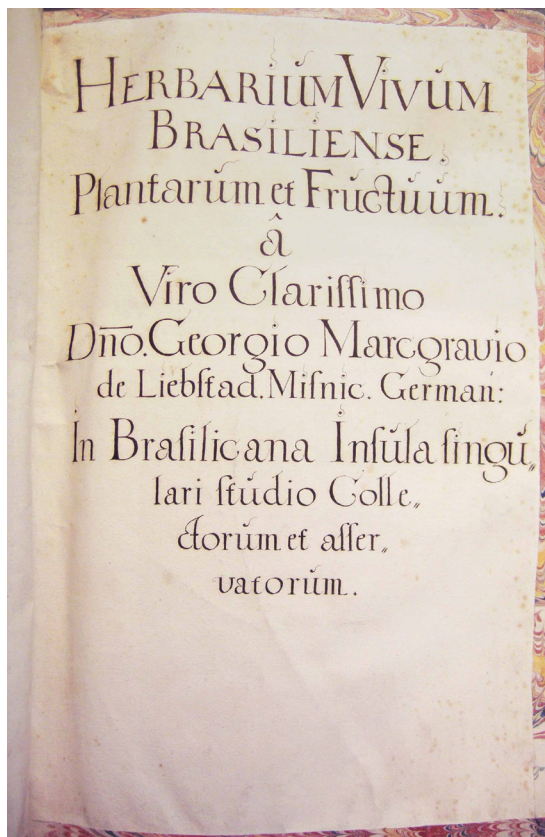 HERBARIŬM VIVŬM
BRASILIENSE.
Plantarŭm et Frŭctŭum.
â
Viro Clariſſimo
Dn̅o. Georgio Marcgravio
de Liebſtad. Miſnic. German:
In Braſilicana Inſŭla ſingŭ„
lari ſtŭdio Colle„
ctorŭm et aſſer„
vatorŭm.